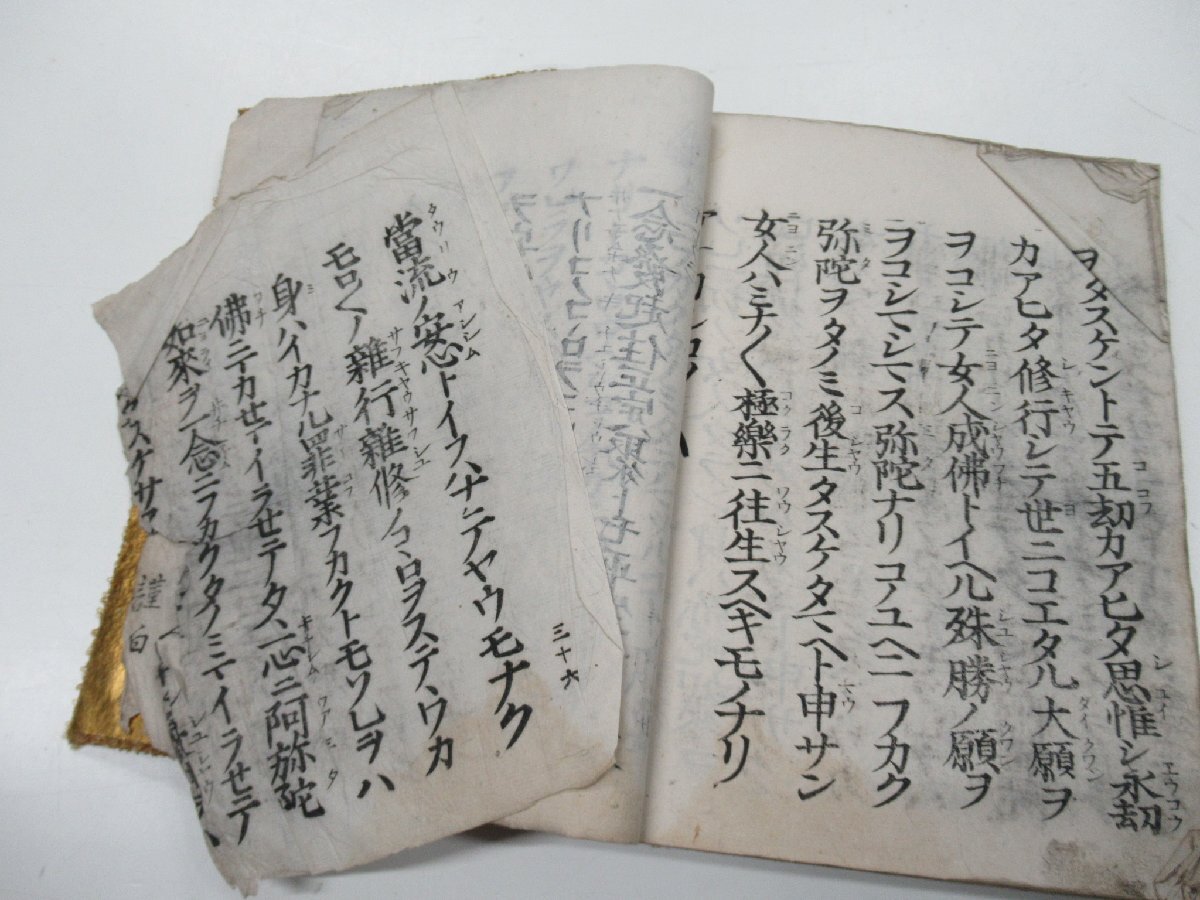 ヲタスケントテ五劫カアヒタ思惟シ永劫
カアヒタ修行シテ世ニコエタル大願ヲ
ヲコシテ女人成佛トイヘル殊勝ノ願ヲ
ヲコシマシマス弥陀ナリコノユヘニフカク
弥陀ヲタノミ後生タスケタマヘト申サン
女人ハミナ〱極樂ニ往生スヘキモノナリ
三十六
當流ノ安心トイフハナニノヤウモナク
モロ〱ノ雜行雜修ノコヽロヲステヽワカ
身ハイカナル罪業フカクトモソレヲハ
佛ニマカセマイラセテタヽ一心ニ阿弥陀
如來ヲ一念ニフカクタノミマイラセテ
謹白